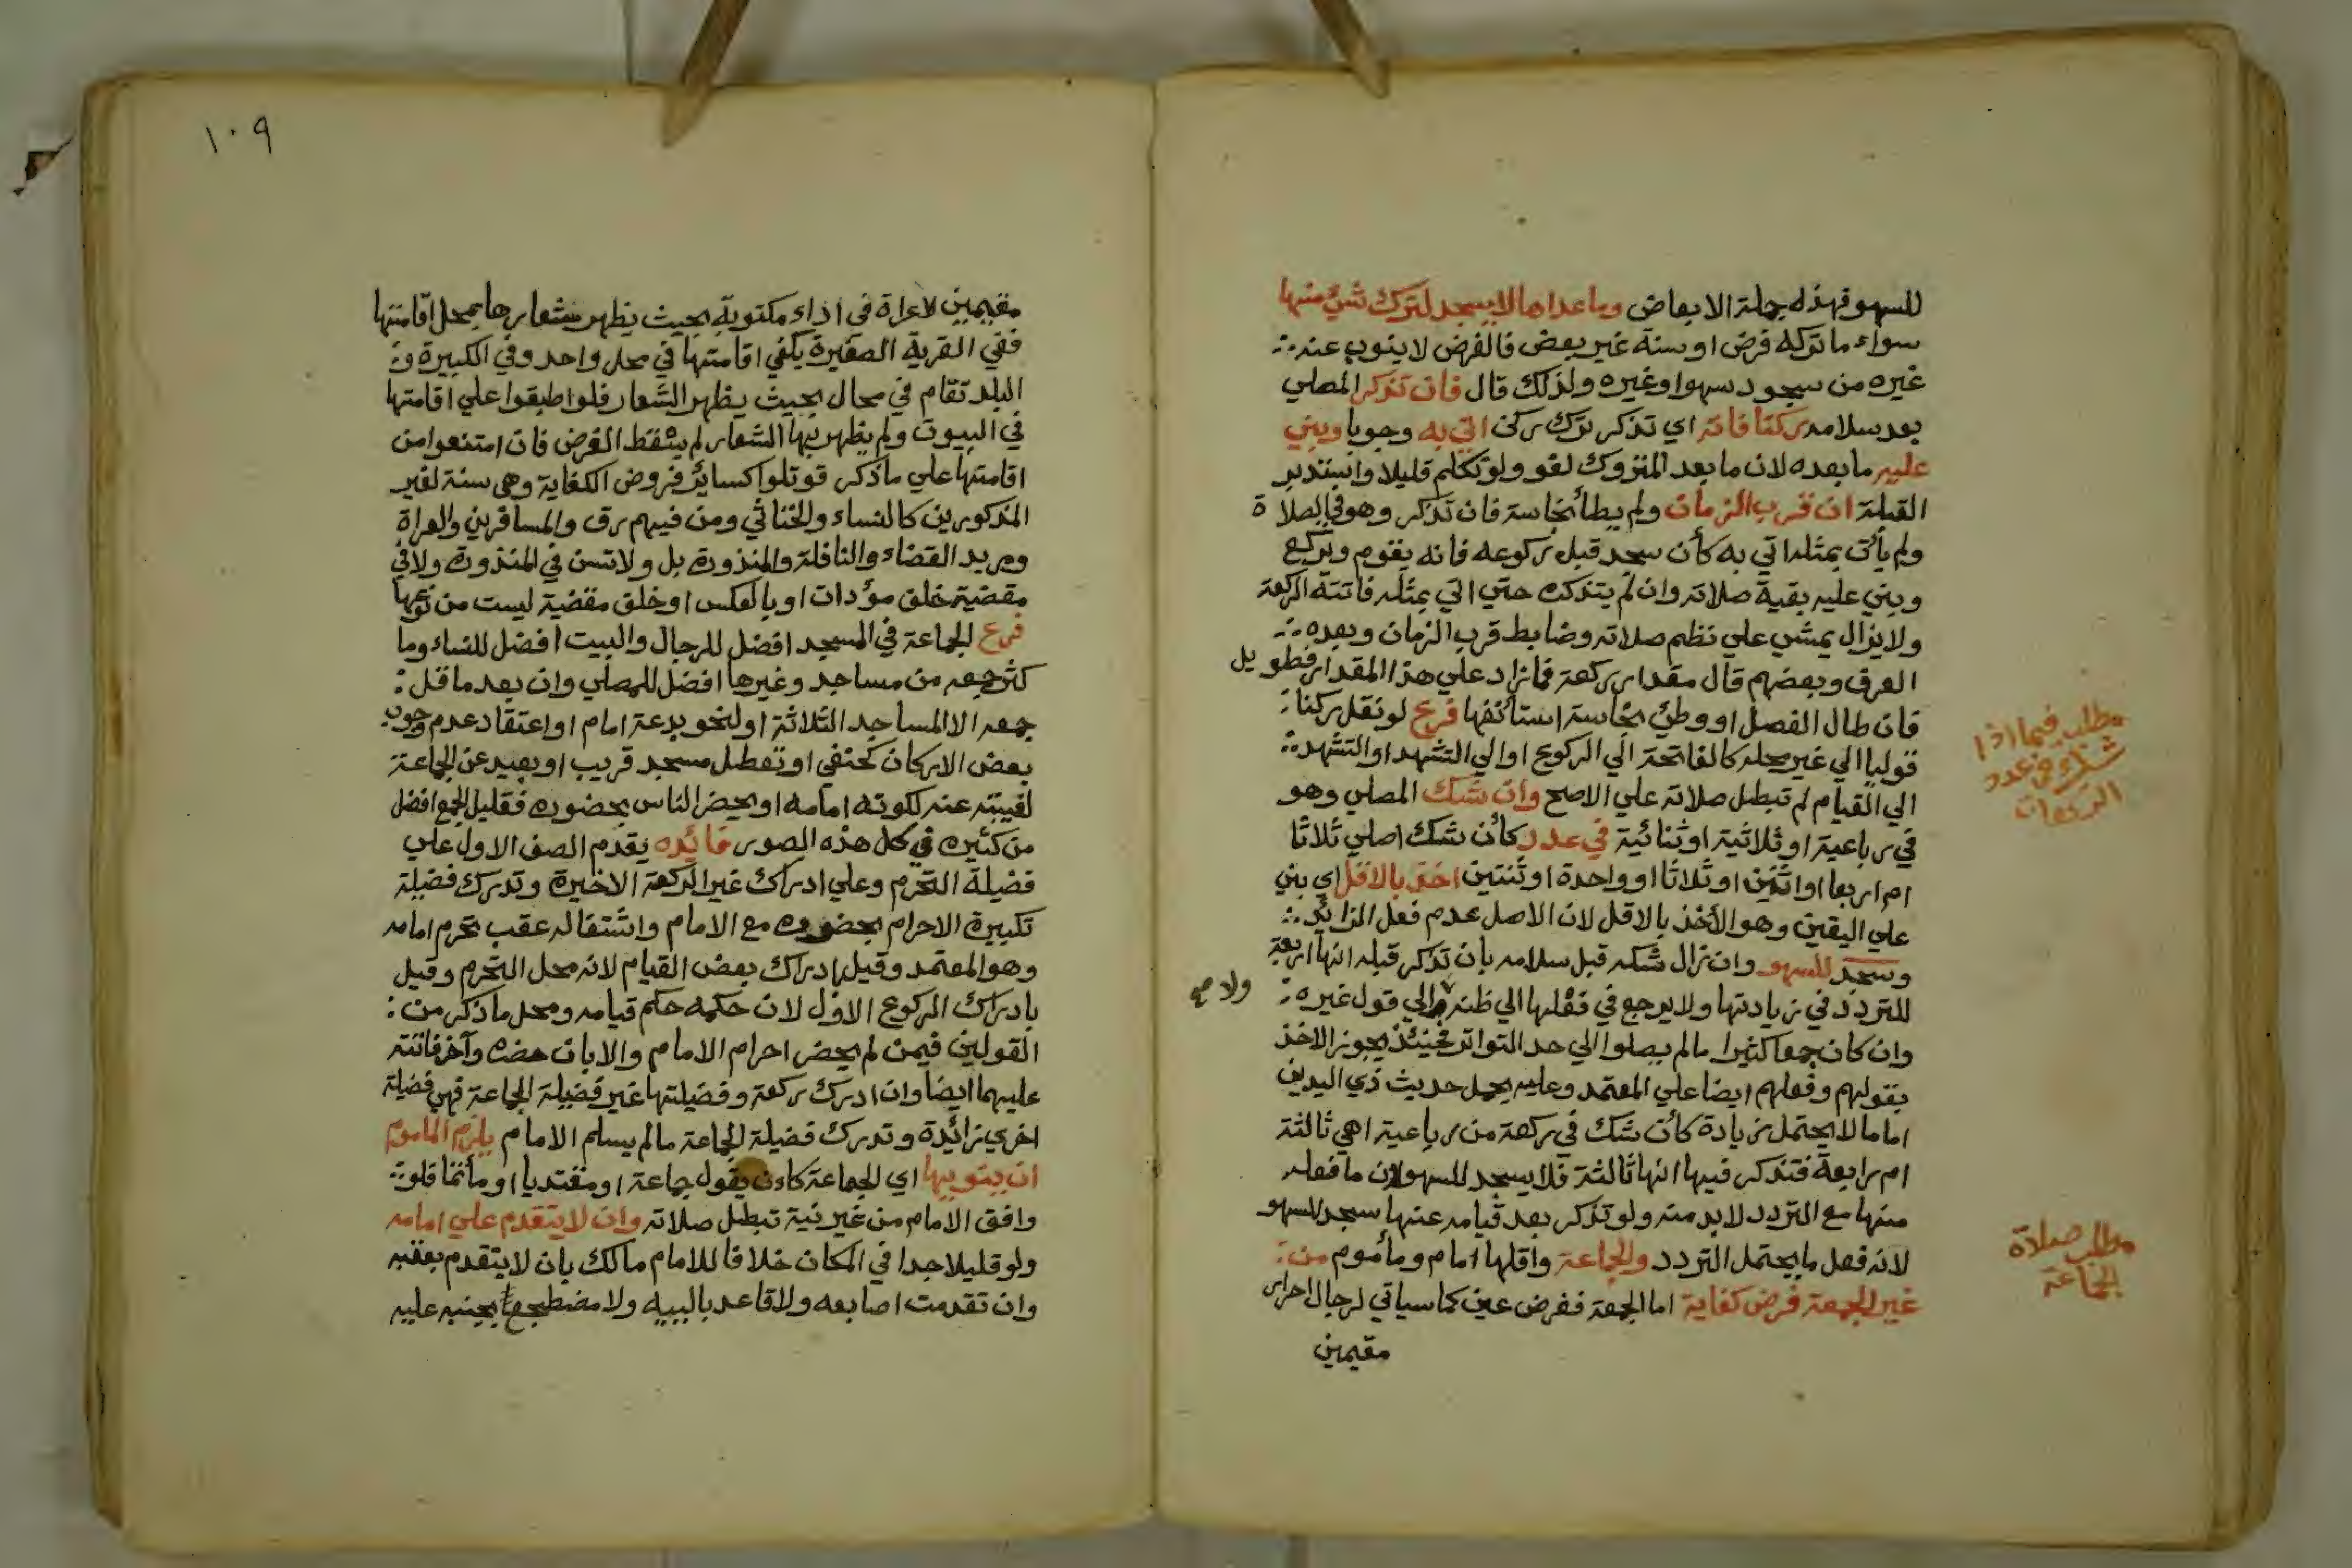 للسهو فهذه جملة الابعاض وما عداها لا يسجد لترك شيء منها
سواء ما تركه فرض او سنة غير بعض فالفرض لا ينوب عنه
غيره من سجود سهوا وغيره ولذلك قال فان تذكر المصلي
بعد سلامه ركنا فاته اي تذكر ترك ركن اتي به وجوبا وبني
عليه ما بعده لان ما بعد المتروك لغو ولو تكلم قليلا واستدبر
القبلة ان قرب الزمان ولم يطأ نجاسة فان تذكر وهو في الصلاة
ولم يأت بمثله اتي به كأن سجد قبل ركوعه فانه يقوم ويركع
وبني عليه بقية صلاته وان لم يتذكره حتي اتي بمثله فاتته الركعة
ولا يزال يمشي علي نظم صلاته وضابط قرب الزمان وبعده
العرف وبعضهم قال مقدار ركعة فما زاد علي هذا المقدار فطويل
فان طال الفصل او وطئ نجاسة استأنفها فرع لو نقل ركنا
قوليا الي غير محله كالفاتحة الي الركوع او الي التشهد او التشهد
الي القيام لم تبطل صلاته علي الاصح وان شك المصلي وهو
في رباعية او ثلاثية او ثنائية في عدد كأن شك اصلي ثلاثا
ام اربعا او اثنين او ثلاثا او واحدة او ثنتين اخذ بالاقل اي بني
علي اليقين وهو الأخذ بالاقل لان الاصل عدم فعل الزائد
وسجد للسهو وان زال شكه قبل سلامه بان تذكر قبله انها اربعة
للتردد في زيادتها ولا يرجع في فعلها الي ظنه ولا الي قول غيره
وان كان جمعا كثيرا ما لم يصلوا الي حد التواتر فحينئذ يجوز الاخذ
بقولهم وفعلهم ايضا علي المعتمد وعليه يحمل حديث ذي اليدين
اما ما لا يحتمل زيادة كأن شك في ركعة من رباعية اهي ثالثة
ام رابعة فتذكر فيها انها ثالثة فلا يسجد للسهو لان ما فعله
منها مع التردد لا بد منه ولو تذكر بعد قيامه عنها سجد للسهو
لانه فعل ما يحتمل التردد والجماعة واقلها امام ومأموم من
غير الجمعة فرض كفاية اما الجمعة ففرض عين كما سياتي لرجال احرار
مقيمين
ولا صح
مطلب فيما اذا
شك في عدد
الركعات
مطلب صلاة
الجماعة
١٠٩
مقيمين لا عراة في اداء مكتوبة بحيث يظهر شعارها بمحل اقامتها
ففي القرية الصغيرة يكفي اقامتها في محل واحد وفي الكبيرة و
البلد تقام في محال بحيث يظهر الشعار فلو اطبقوا علي اقامتها
في البيوت ولم يظهر بها الشعار لم يسقط الفرض فان امتنعوا من
اقامتها علي ما ذكر قوتلوا كسائر فروض الكفاية وهي سنة لغير
المذكورين كالنساء والخناثي ومن فيهم رق والمسافرين والعراة
ومريد القضاء والنافلة والمنذورة بل ولا تسن في المنذورة ولا في
مقضية خلف مؤدات او بالعكس او خلف مقضية ليست من نوعها
فرع الجماعة في المسجد افضل للرجال والبيت افضل للنساء وما
كثر جمعه من مساجد وغيرها افضل للمصلي وان بعد ما قل
جمعه الا المساجد الثلاثة او لنحو بدعة امام او اعتقاد عدم وجوب
بعض الاركان كحنفي او تعطل مسجد قريب او بعيد عن الجماعة
لغيبته عنه لكونه امامه او يحضر الناس بحضوره فقليل الجمع افضل
من كثيره في كل هذه الصور فائده يقدم الصف الاول علي
فضيلة التحرم وعلي ادراك غير الركعة الاخيرة وتدرك فضيلة
تكبيرة الاحرام بحضوره مع الامام واشتغاله عقب تحرم امامه
وهو المعتمد وقيل بادراك بعض القيام لانه محل التحرم وقيل
بادراك الركوع الاول لان حكمه حكم قيامه ومحل ما ذكر من
القولين فيمن لم يحضر احرام الامام والا بان حضره وآخر فاتته
عليهما ايضا وان ادرك ركعة وفضيلتها غير فضيلة الجماعة فهي فضيلة
اخري زائدة وتدرك فضيلة الجماعة ما لم يسلم الامام يلزم الماموم
ان ينوي بها اي الجماعة كاءن يقول جماعة او مقتديا او مأتما فلو
وافق الامام من غير نية تبطل صلاته وان لا يتقدم علي امامه
ولو قليلا جدا في المكان خلافا للامام مالك بان لا يتقدم بعقبه
وان تقدمت اصابعه ولا قاعد بالييه ولا مضطجع بجنبه عليه